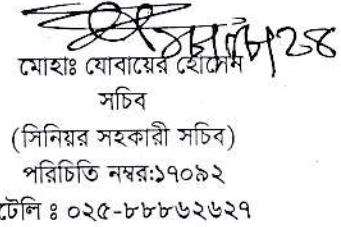 মোহাঃ যোবায়ের হোসেন
সচিব
(সিনিয়র সহকারী সচিব)
পরিচিতি নম্বর:১৭০৯২
টেলি ঃ ০২৫-৮৮৮৬২৬২৭